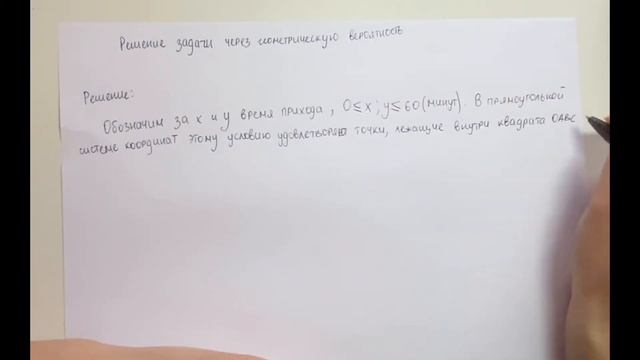 Решение задачи через геометрическую вероятность
Решение:
Обозначим за x и y время прихода, 0 ≤ x ; y ≤ 60 (минут). В прямоугольной
системе координат этому условию удовлетворяю точки, лежащие внутри квадрата OABC